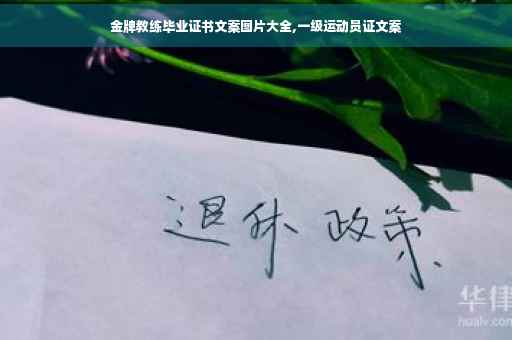 金牌教练毕业证书文案图片大全,一级运动员证文案
退休 政策
华律
hualv.com